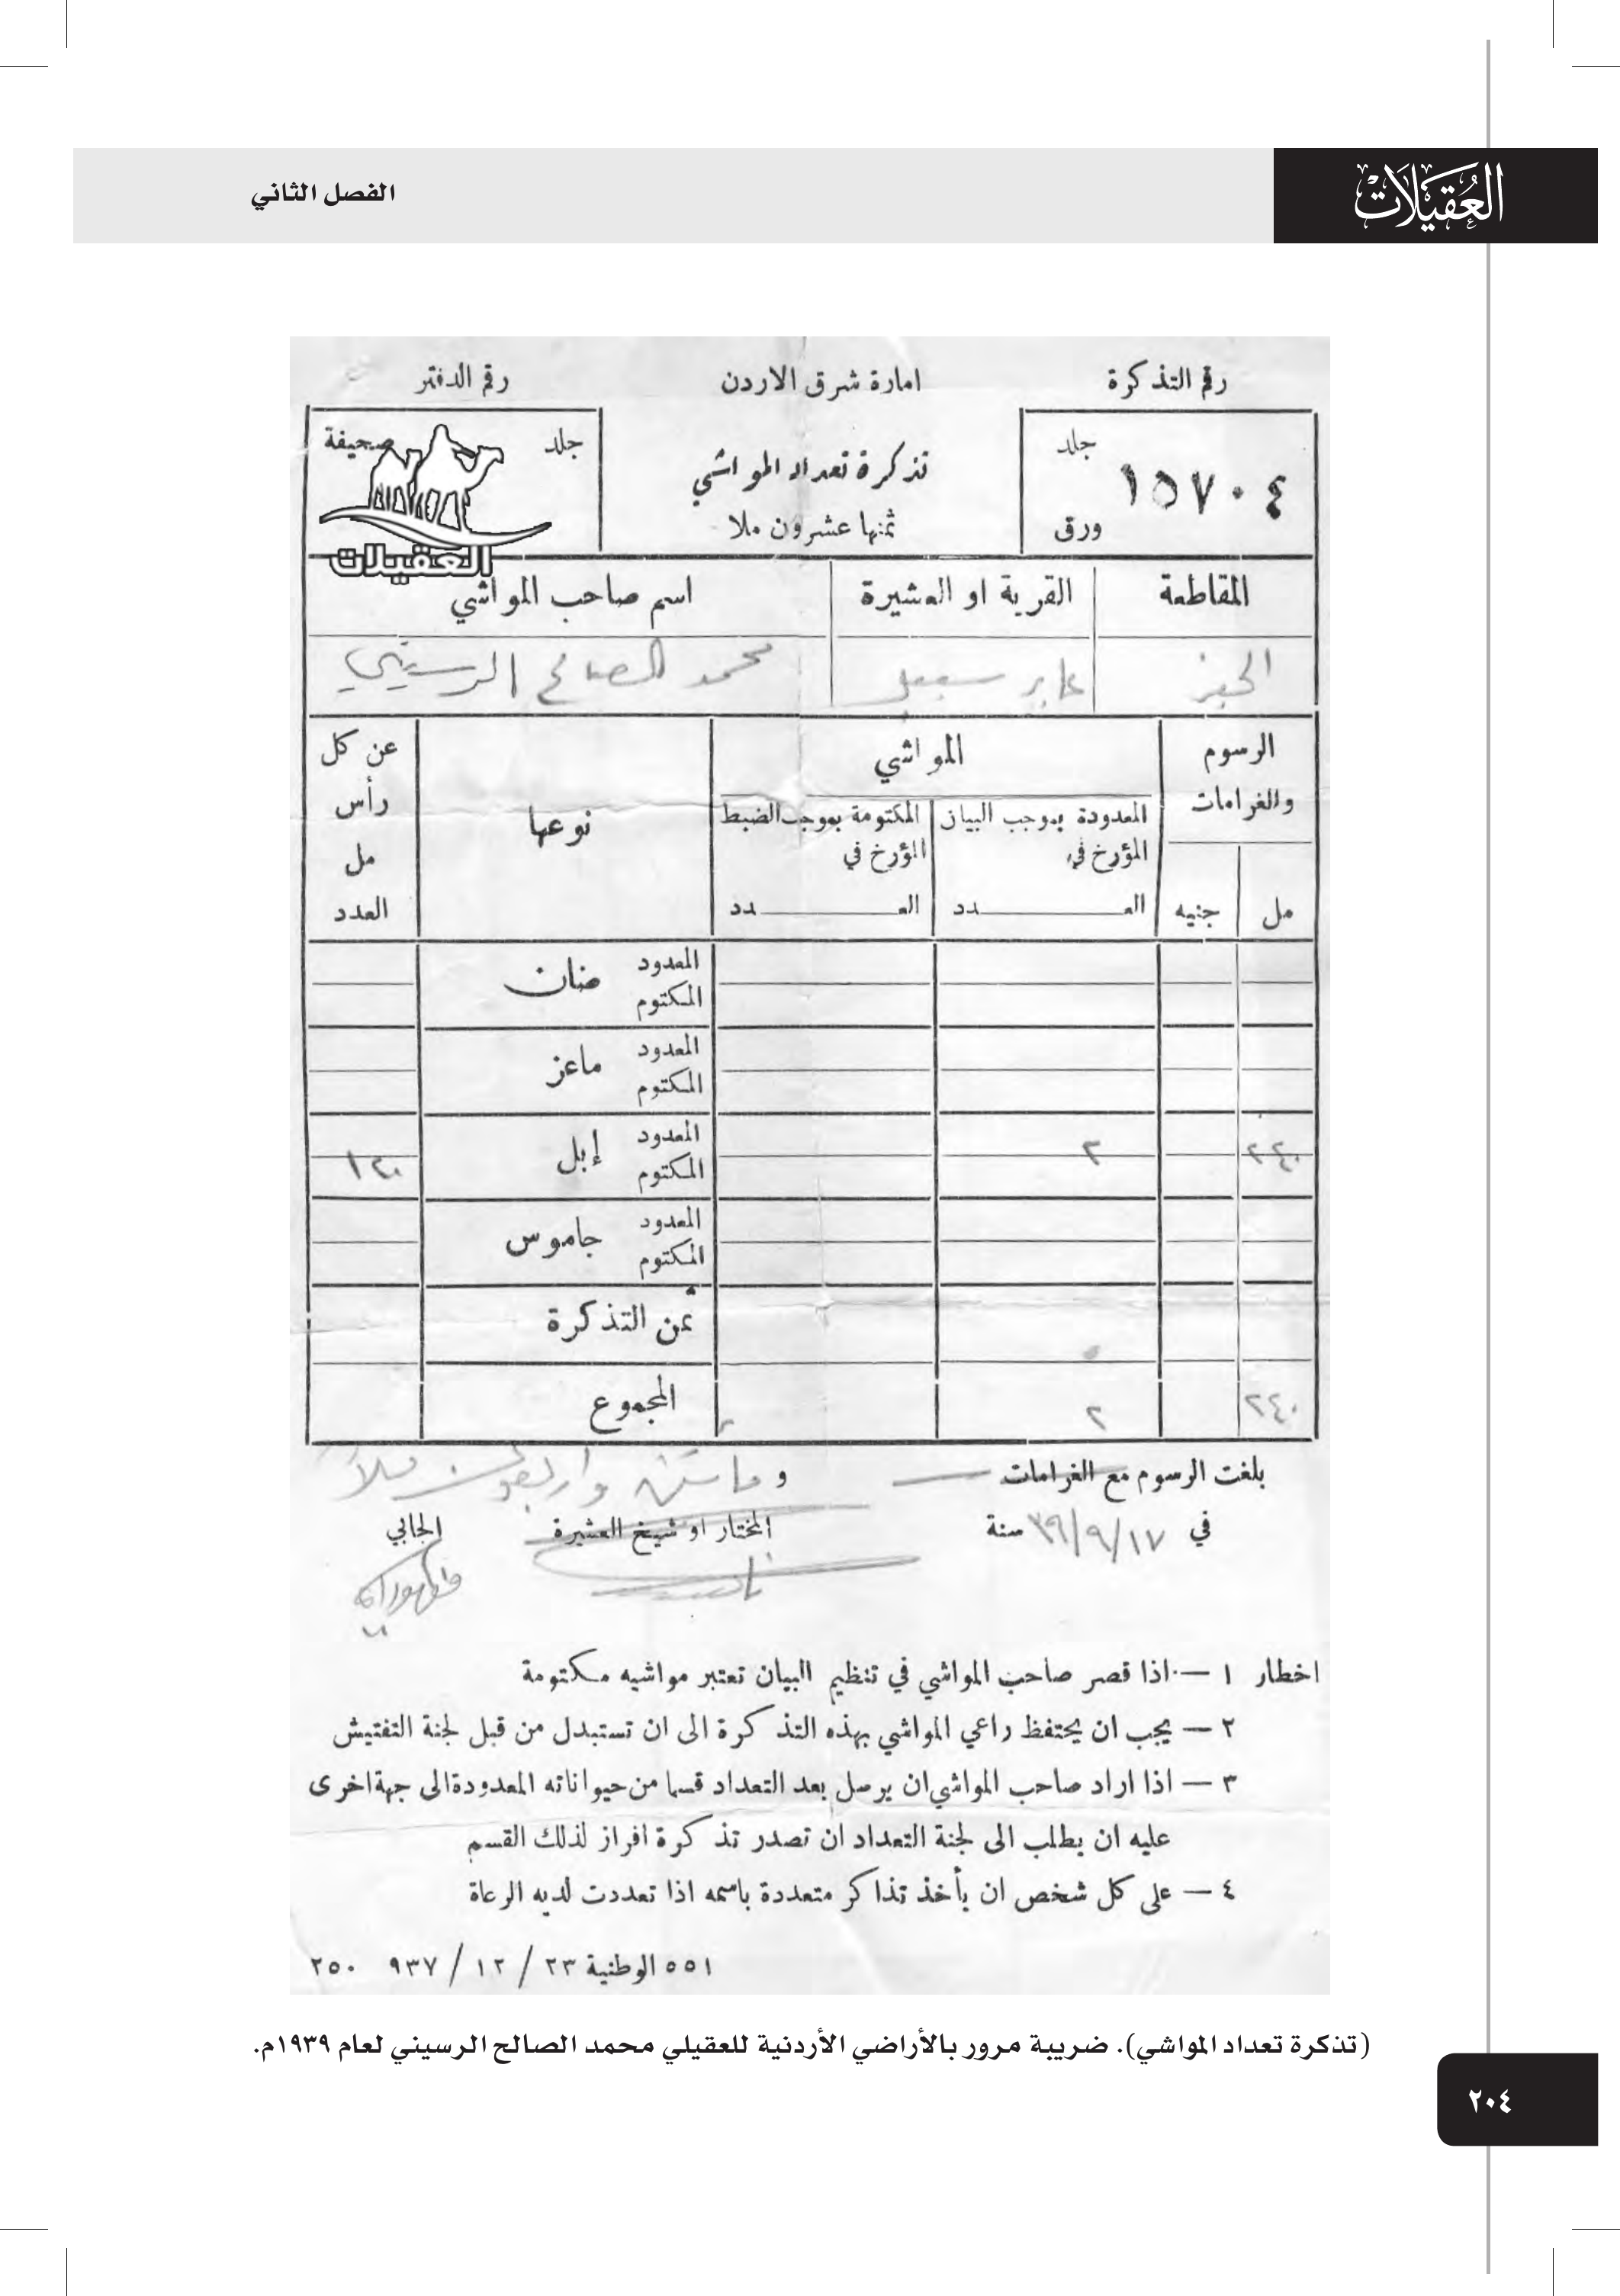 العقيلات
الفصل الثاني
رقم التذكرة
امارة شرق الاردن
رقم الدفتر
جلد
١٥٧٠٤
ورق
تذكرة تعداد المواشي
ثمنها عشرون ملا
جلد
صحيفة
العقيلات
المقاطعة
القرية او العشيرة
اسم صاحب المواشي
الحفر
عابر سبيل
محمد الصالح الرسيني
الرسوم
والغرامات
المواشي
نوعها
عن كل
رأس
مل
العدد
المعدودة بموجب البيان
المؤرخ في
المكتومة بموجب الضبط
المؤرخ في
مل
جنيه
العـــدد
العـــدد
المعدود
المكتوم
ضان
المعدود
المكتوم
ماعز
٢٤٠
٢
المعدود
المكتوم
إبل
١٢٠
المعدود
المكتوم
جاموس
ثمن التذكرة
٢٤٠
٢
المجموع
بلغت الرسوم مع الغرامات
و مائتين واربعون ملاً
في ١٧/٩/٣٩ سنة
المختار او شيخ العشيرة
الجابي
اخطار ١ — اذا قصر صاحب المواشي في تنظيم البيان تعتبر مواشيه مكتومة
٢ — يجب ان يحتفظ راعي المواشي بهذه التذكرة الى ان تستبدل من قبل لجنة التفتيش
٣ — اذا اراد صاحب المواشي ان يرسل بعد التعداد قسما من حيواناته المعدودة الى جهة اخرى
عليه ان يطلب الى لجنة التعداد ان تصدر تذكرة افراز لذلك القسم
٤ — على كل شخص ان يأخذ تذاكر متعددة باسمه اذا تعددت لديه الرعاة
٥٥١ الوطنية ٢٣ / ١٢ / ٩٣٧ ٢٥٠
(تذكرة تعداد المواشي). ضريبة مرور بالأراضي الأردنية للعقيلي محمد الصالح الرسيني لعام ١٩٣٩م.
٢٠٤